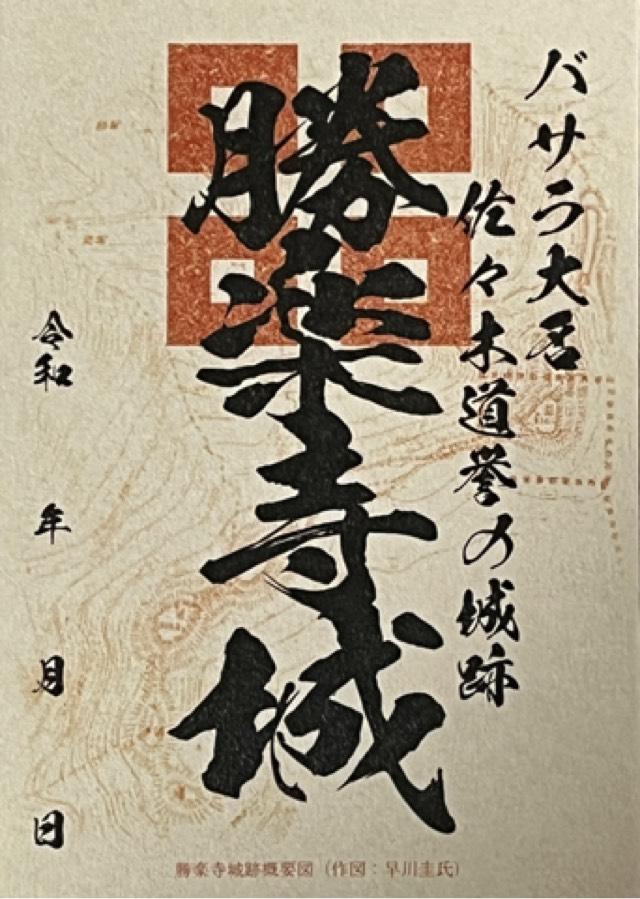 バサラ大名
佐々木道誉の城跡
勝楽寺城
令和 年 月 日
勝楽寺城跡概要図（作図：早川圭氏）